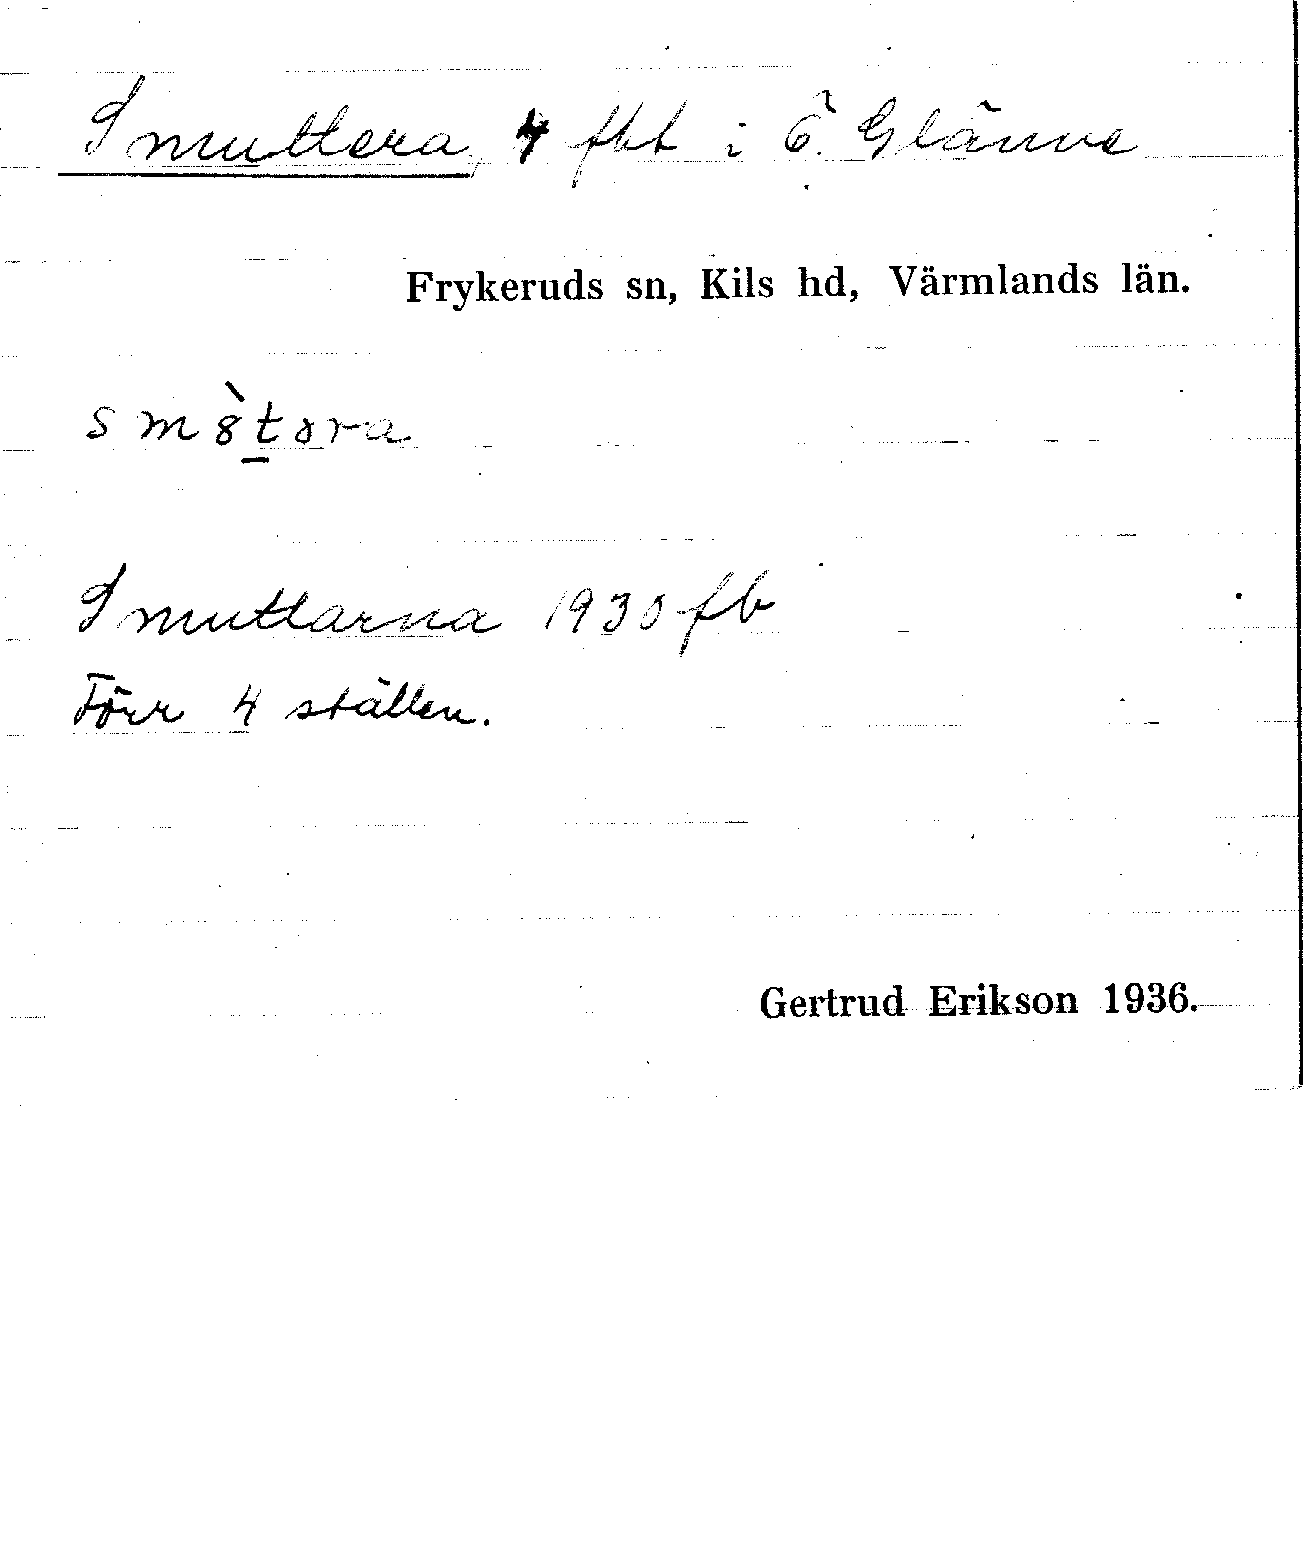 Smuttera, 4 fht i Ö. Glänne
Frykeruds sn, Kils hd, Värmlands län.
sm8̀t̲ɘra
Smuttarna 1930 fb
Förr 4 ställen.
Gertrud Erikson 1936.